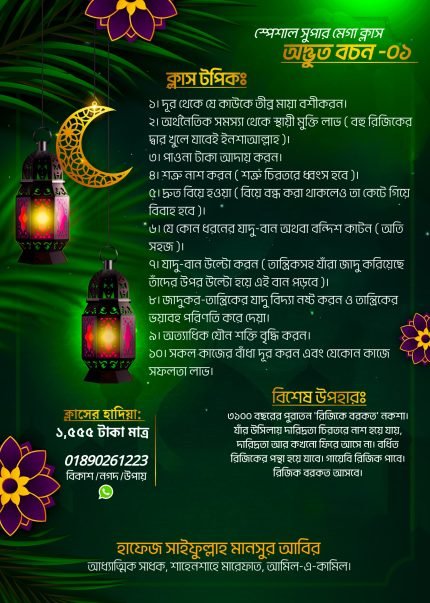 স্পেশাল সুপার মেগা ক্লাস
অদ্ভুত বচন -০১
ক্লাস টপিকঃ
১। দূর থেকে যে কাউকে তীব্র মায়া বশীকরন।
২। অর্থনৈতিক সমস্যা থেকে স্থায়ী মুক্তি লাভ ( বহু রিজিকের
দ্বার খুলে যাবেই ইনশাআল্লাহ )।
৩। পাওনা টাকা আদায় করন।
৪। শত্রু নাশ করন ( শত্রু চিরতরে ধ্বংস হবে )।
৫। দ্রুত বিয়ে হওয়া ( বিয়ে বন্ধ করা থাকলেও তা কেটে গিয়ে
বিবাহ হবে )।
৬। যে কোন ধরনের যাদু-বান অথবা বন্দিশ কাটন ( অতি
সহজ )।
৭। যাদু-বান উল্টো করন ( তান্ত্রিকসহ যাঁরা জাদু করিয়েছে
তাঁদের উপর উল্টো হয়ে এই বান পড়বে )।
৮। জাদুকর-তান্ত্রিকের যাদু বিদ্যা নষ্ট করন ও তান্ত্রিকের
ভয়াবহ পরিণতি করে দেয়া।
৯। অত্যাধিক যৌন শক্তি বৃদ্ধি করন।
১০। সকল কাজের বাঁধা দূর করন এবং যেকোন কাজে
সফলতা লাভ।
ক্লাসের হাদিয়া:
১,৫৫৫ টাকা মাত্র
01890261223
বিকাশ /নগদ /উপায়
বিশেষ উপহারঃ
৩১০০ বছরের পুরাতন 'রিজিকে বরকত' নকশা।
যাঁর উসিলায় দারিদ্রতা চিরতরে নাশ হয়ে যায়,
দারিদ্রতা আর কখনো ফিরে আসে না। বর্ধিত
রিজিকের পন্থা হয়ে যাবে। গায়েবি রিজিক পাবে।
রিজিক বরকত আসবে।
হাফেজ সাইফুল্লাহ মানসুর আবির
আধ্যাত্মিক সাধক, শাহেনশাহে মারেফাত, আমিল-এ-কামিল।